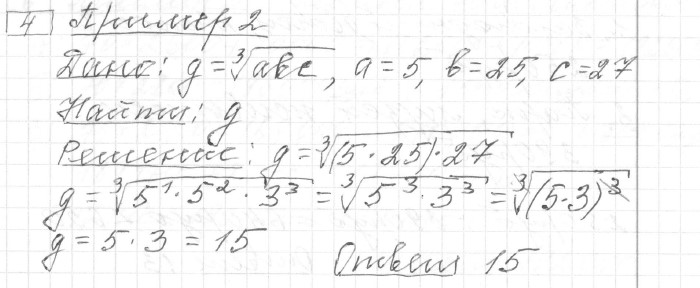 4 Пример 2
Дано: g = ∛(abc), a = 5, b = 25, c = 27
Найти: g
Решение: g = ∛((5·25)·27)
g = ∛(5¹·5²·3³) = ∛(5³·3³) = ∛((5·3)³)
g = 5·3 = 15
Ответ 15